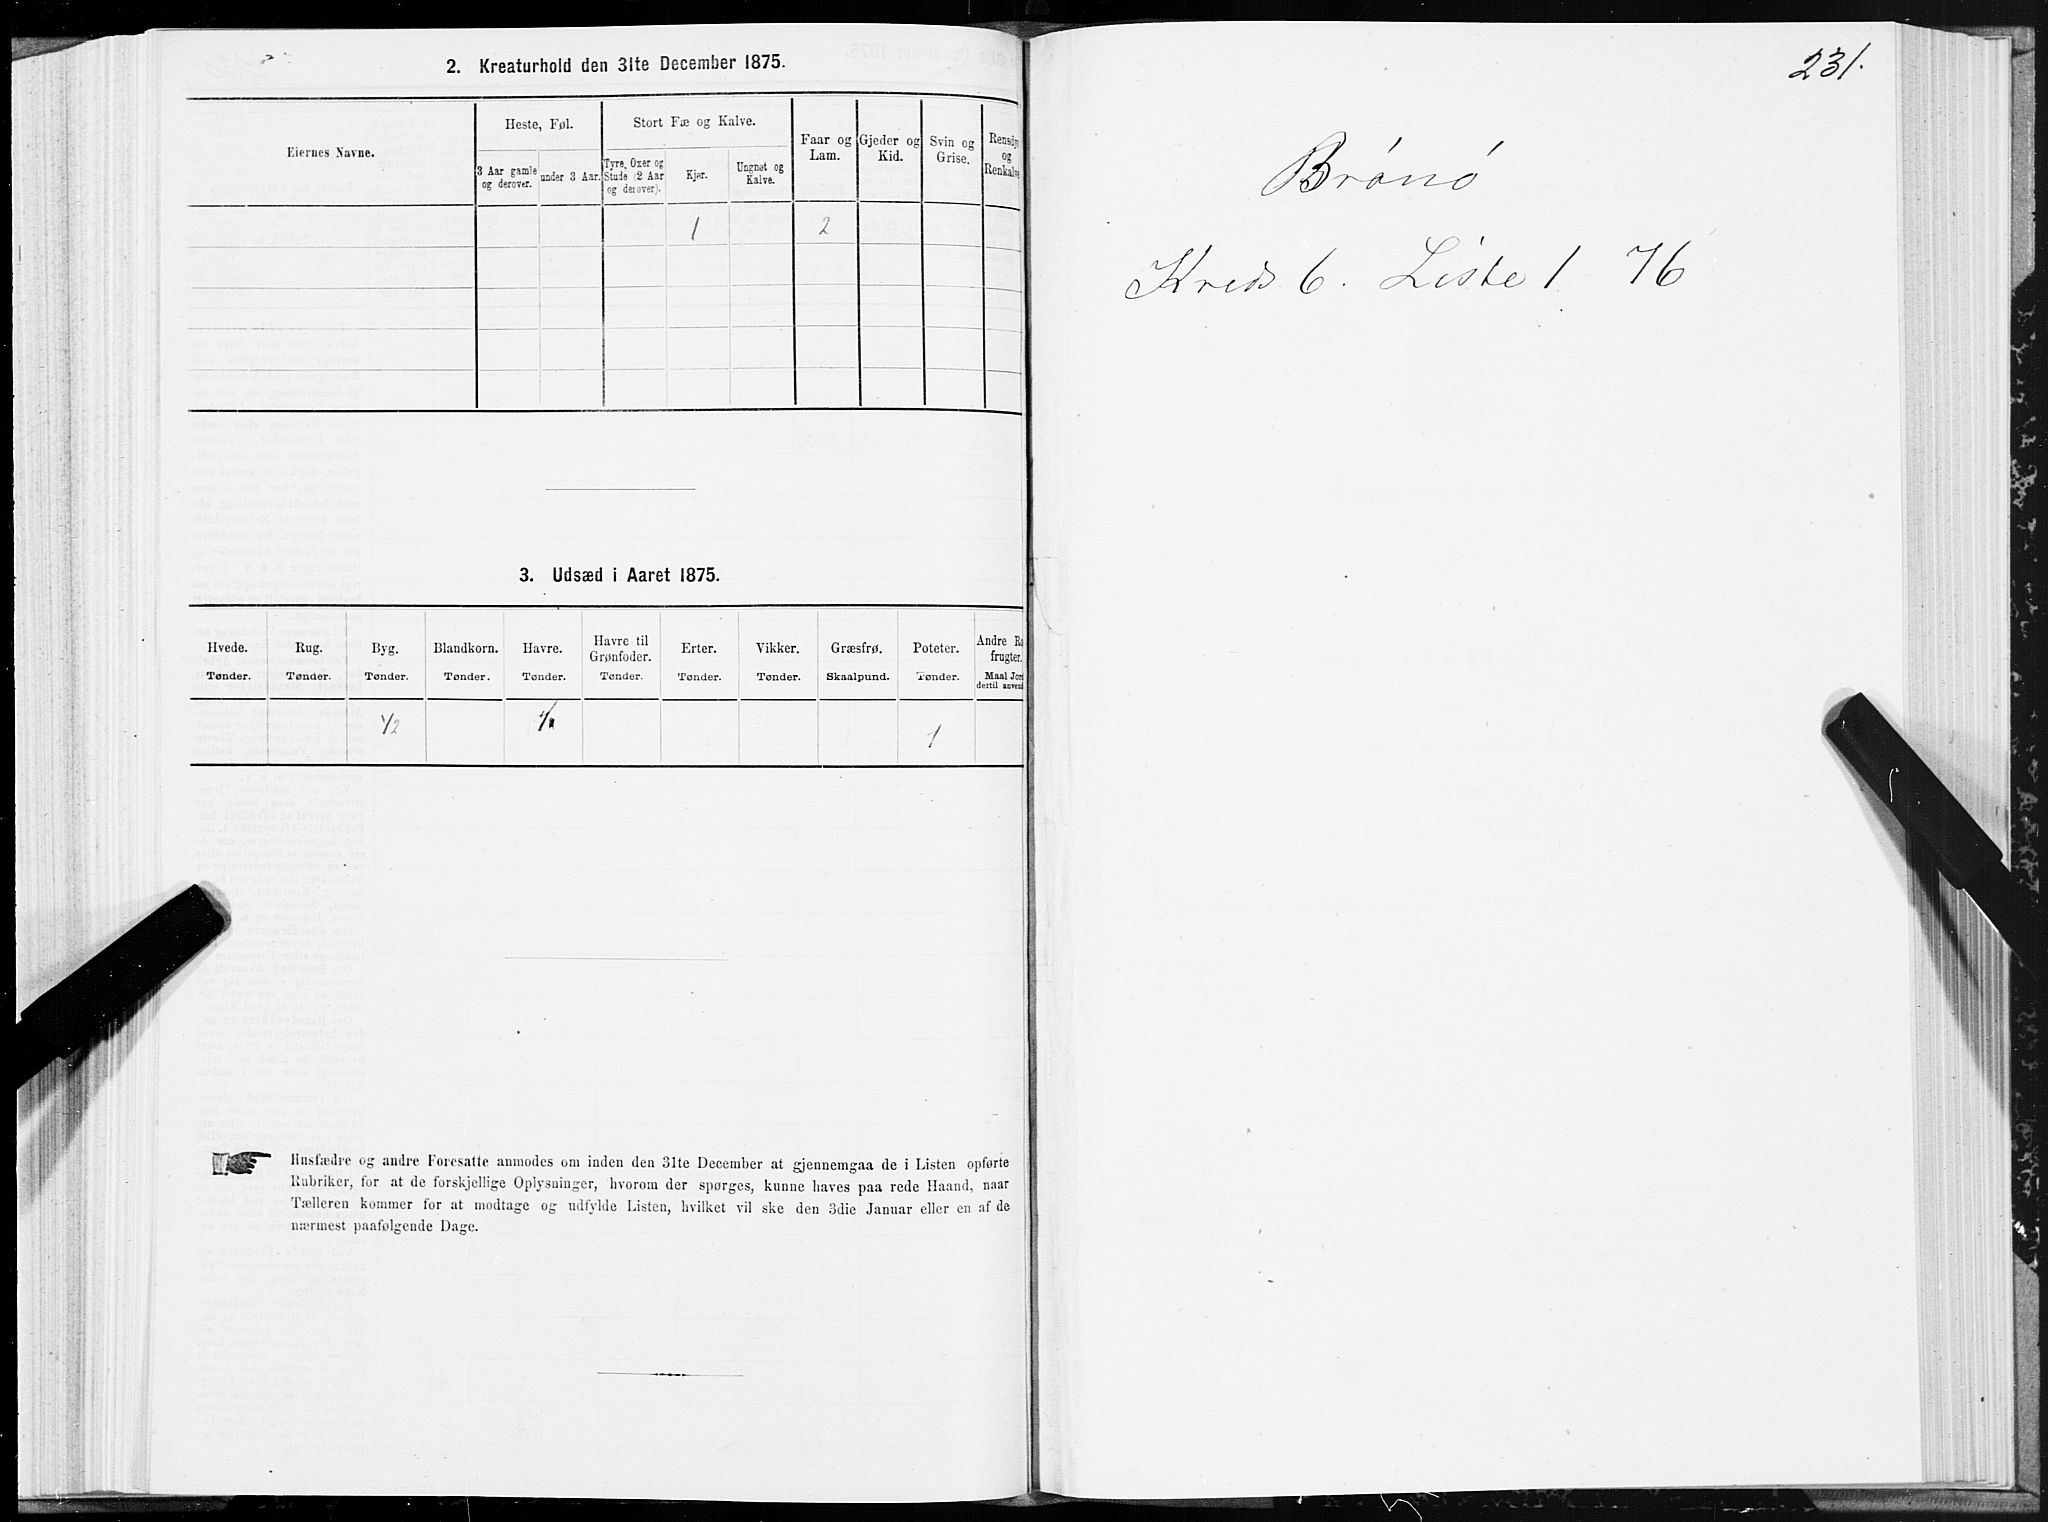 2. Kreaturhold den 31te December 1875.
Eiernes Navne.
Heste, Føl.
Stort Fæ og Kalve.
Faar og Lam.
Gjeder og Kid.
Svin og Grise.
Rensdyr og Renkalve
3 Aar gamle og derover.
under 3 Aar.
Tyre, Oxer og Stude (2 Aar og derover).
Kjør.
Ungnøt og Kalve.
1 2
3. Udsæd i Aaret 1875.
Hvede. Rug. Byg. Blandkorn. Havre. Havre til Grønfoder. Erter. Vikker. Græsfrø. Poteter. Andre Ro frugter.
Tønder. Tønder. Tønder. Tønder. Tønder. Tønder. Tønder. Tønder. Skaalpund. Tønder. Maal Jord dertil anvend
1/2 1
Husfædre og andre Foresatte anmodes om inden den 31te December at gjennemgaa de i Listen opførte
Rubriker, for at de forskjellige Oplysninger, hvorom der spørges, kunne haves paa rede Haand, naar
Tælleren kommer for at modtage og udfylde Listen, hvilket vil ske den 3die Januar eller en af de
nærmest paafølgende Dage.
231.
Brönö
Kreds 6. Liste 1 76